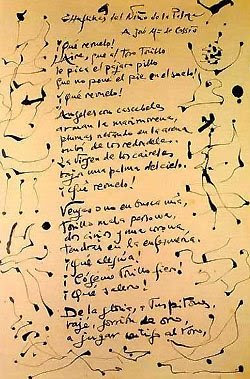 Chuflillas del Niño de la Palma
A José Mª de Cossío
¡Qué revuelo!
¡Aire, que al toro torillo
le pica el pájaro pillo
que no pone el pie en el suelo!
¡Qué revuelo!
Ángeles con cascabeles
arman la marimorena,
plumas nevando en la arena
rubí de los redondeles.
La Virgen de los caireles
baja una palma del cielo.
¡Qué revuelo!
Vengas o no en busca mía,
torillo mala persona,
dos cirios y una corona
tendrás en la enfermería.
¡Qué alegría!
¡Cógeme, torillo fiero!
¡Qué salero!
De la gloria, a tus pitones,
bajé, gorrión de oro,
a jugar contigo al toro,